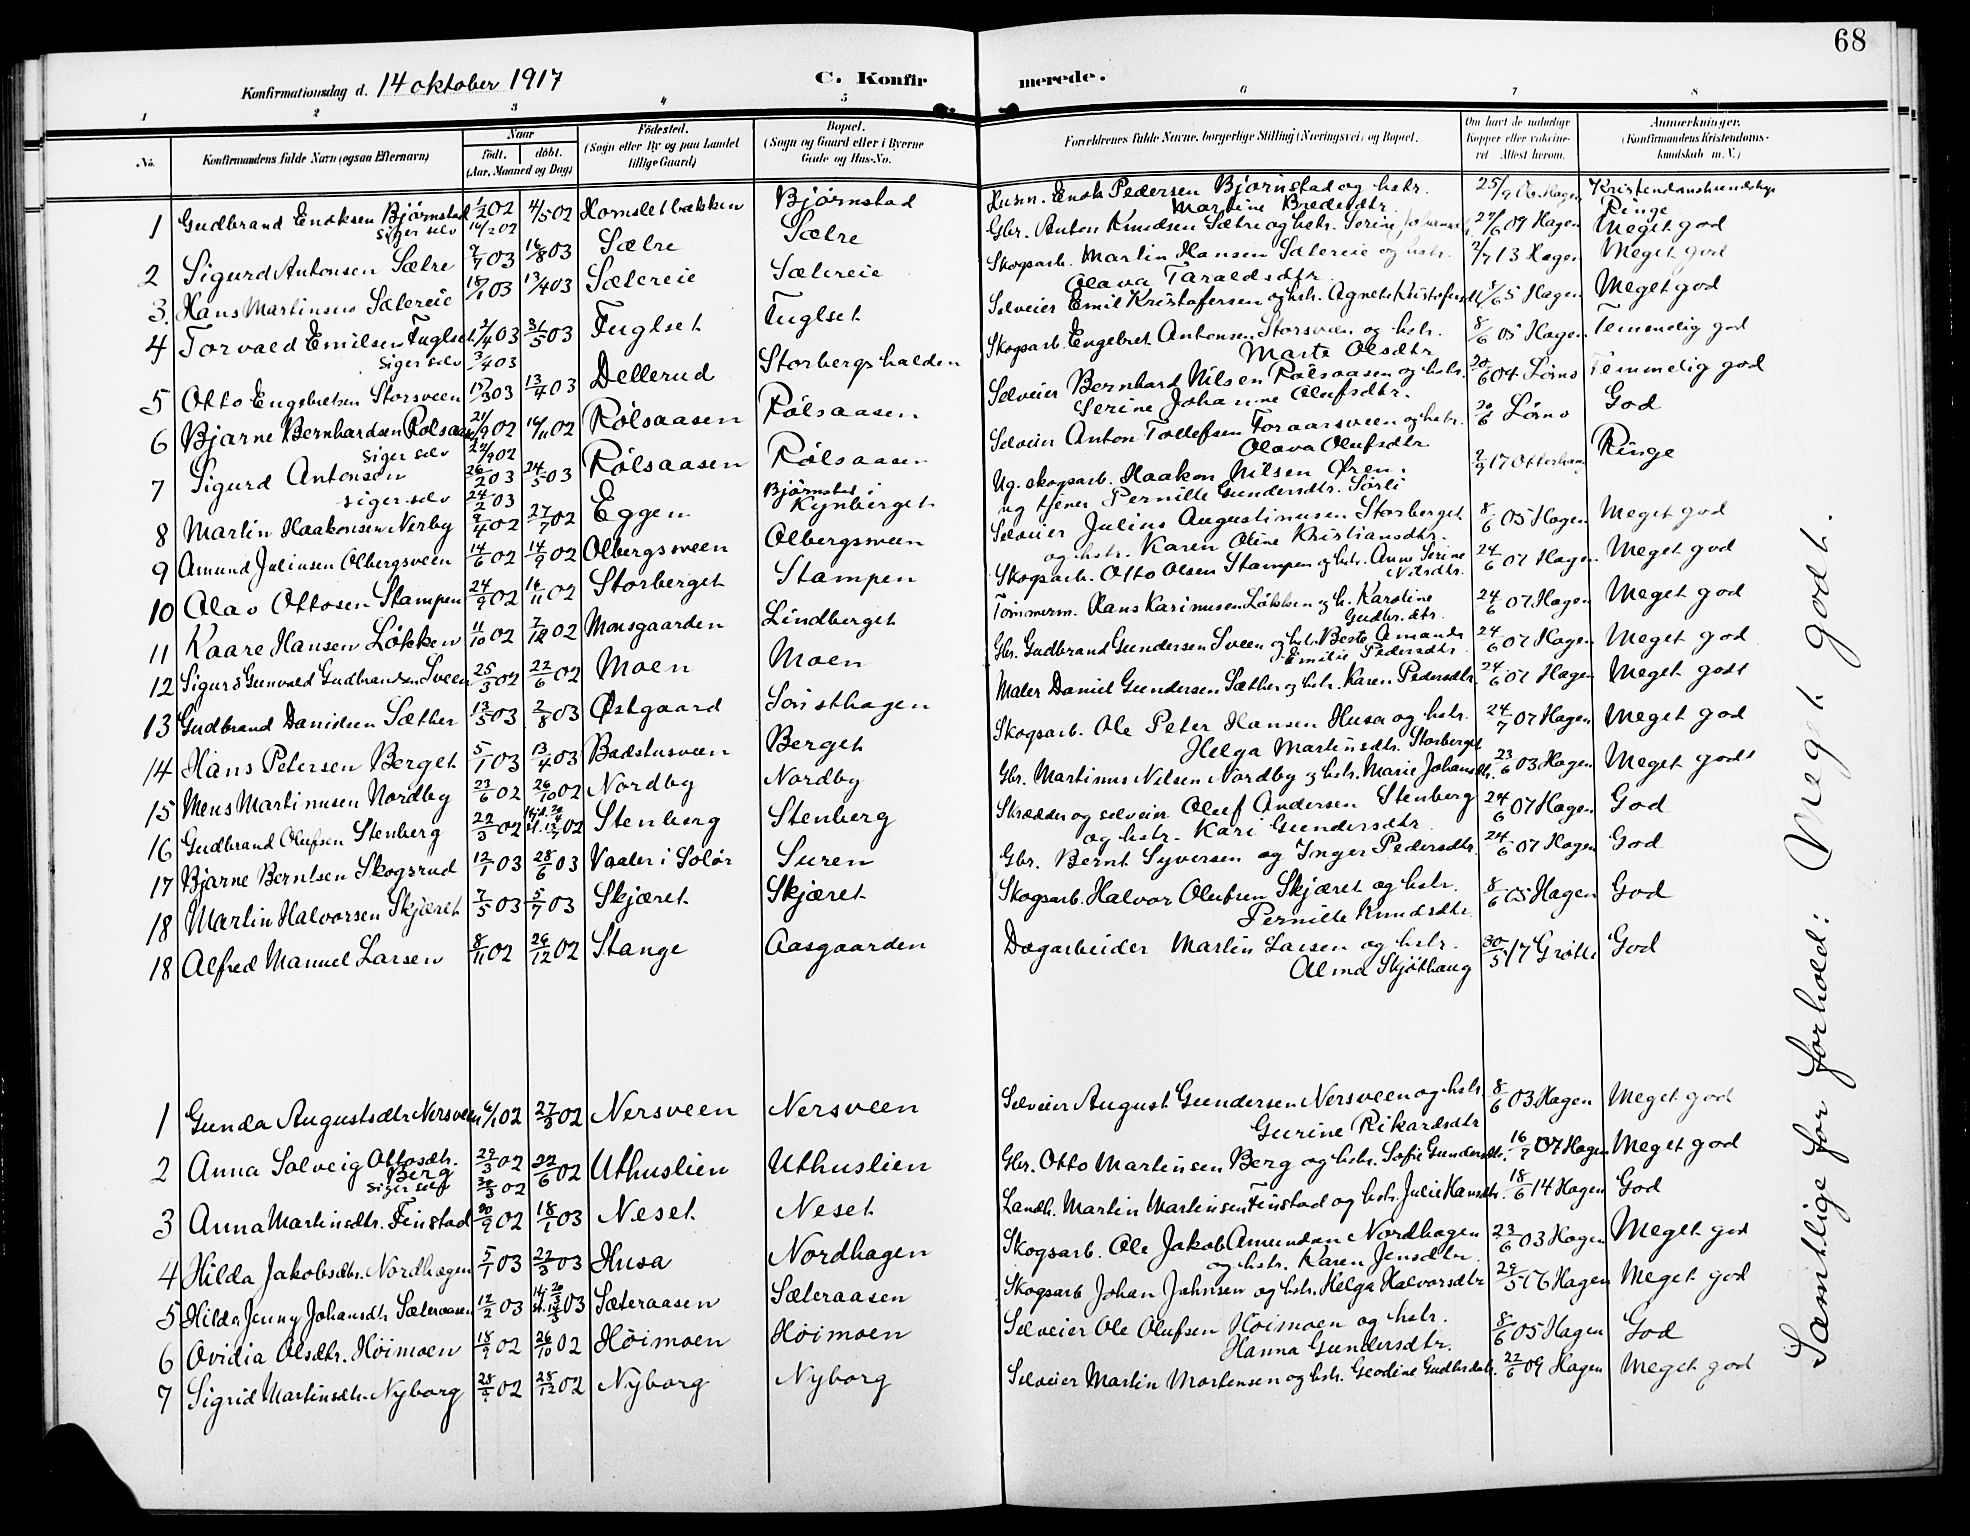 68
Konfirmationsdag d. 14 oktober 1917 C. Konfirmerede.
1 2 3 4 5 6 7 8
No. Konfirmandens fulde Navn (ogsaa Efternavn) Naar født. døbt. (Aar, Maaned og Dag) Fødested. (Sogn eller By og paa Landet tillige Gaard) Bopæl. (Sogn og Gaard eller i Byerne Gade og Hus-No. Forældrenes fulde Navne, borgerlige Stilling (Næringsvei) og Bopæl. Om havt de naturlige Kopper eller vaccineret Attest herom. Anmerkninger. (Konfirmandens Kristendomskundskab m. V.)
1 Gudbrand Endresen Bjørnstad 1/2 02 4/5 02 Hornsletbækken Bjørnstad Husm. Pedersen Bjørnstad og hstr. 25/9 06 Hagen Kristendomskundskap
siger selv 16/2 02 Martine Bredesdtr. Ringe
2 Sigurd Antonsen Sætre 9/7 03 16/8 03 Sætre Sætre Gbr. Anton Knudsen Sætre og hstr. Serine 27/6 09 Hagen Meget god
3. Hans Martinsen Sætereie 18/1 03 13/4 03 Sætereie Sætereie Skogsarb. Martin Hansen Sætereie og hstr. 2/7 13 Hagen Meget god
Olava Taraldsdtr.
4 Torvald Emilsen Fuglset 2/4 03 31/5 03 Fuglset Fuglset Selveier Emil Kristofersen og hstr. Agnete 8/6 5 Hagen Meget god
siger selv 3/4 03
5 Otto Engebretsen Storsveen 17/3 03 13/4 03 Dellerud Storbergshalden Skogsarb. Engebret Antonsen Storsveen og hstr. 8/6 05 Hagen Temmelig god
Marte Olsdtr
6 Bjarne Bernhardsen Rølsaasen 21/9 02 16/11 02 Rølsaasen Rølsaasen Selveier Bernhard Nilsen Rølsaasen og hstr. 20/6 04 Lørns Temmelig god
siger selv 22/9 02 Serine Johanne Olufsdtr.
7 Sigurd Antonsen 26/2 03 24/5 03 Rølsaasen Rølsaasen Selveier Anton Tollefsen Foraarsveen og hstr. 20/6 Lørns God
siger selv 24/2 03 Olava Olufsdtr
8 Martin Haakonsen Nerby 9/4 02 27/7 02 Eggen Bjørnstad i Kynberget Ug. skogsarb. Haakon Nilsen Øren. 2/9 17 Ringe
ug tjener Pernille Gundersdtr. Sørli
9 Amund Juliusen Olbergsveen 14/6 02 14/9 02 Olbergsveen Olbergsveen Selveier Julius Augustinusen Storberget 8/6 05 Hagen Meget god
og hstr. Karen Oline Kristiansdtr.
10 Olav Ottosen Stampen 24/9 02 16/11 02 Storberget Stampen Skogsarb. Otto Olsen Stampen og hstr. Anne Serine 24/6 07 Hagen Meget god
Nilsdtr.
11 Kaare Hansen Løkken 11/10 02 7/12 02 Monsgaarden Lindberget Tømmerm. Hans Karinusen Løkken og h. Karoline 24/6 07 Hagen Meget god
Gudbr.dtr.
12 Sigurd Gunvald Gudbrandsen Sveen 25/3 02 22/6 02 Moen Moen Gbr. Gudbrand Gundersen Sveen og hstr. Berte Amanda 24/6 07 Hagen Meget god
Emilie Pedersdtr
13 Gudbrand Danielsen Sæther 13/5 03 2/8 03 Østgaard Soristhagen Maler Daniel Gundersen Sæther og hstr. Karen Pedersdtr. 24/6 07 Hagen Meget godt
14 Hans Petersen Berget 5/1 03 13/4 03 Badstusveen Berget Skogsarb. Ole Peter Hansen Husa og hstr. 24/7 07 Hagen Meget god
Helga Martinsdtr. Storberget
15 Mens Martinusen Nordby 23/6 02 26/10 02 Nordby Nordby Gbr. Martinus Nilsen Nordby og hstr. Marie Johansdtr. 23/6 03 Hagen Meget godt
16 Gudbrand Olufsen Stenberg 22/3 02 02 Stenberg Stenberg Skrædder og selveier Oluf Andersen Stenberg 24/6 07 Hagen God
og hstr. Kari Gundersdtr
17 Bjarne Berntsen Skogsrud 12/1 03 28/6 03 Vaaler i Solør Suren Gbr. Bernt Syversen og Inger Pedersdtr. 24/6 07 Hagen God
18 Martin Halvorsen Skjæret 7/5 03 5/7 03 Skjæret Skjæret Skogsarb. Halvor Olufsen Skjæret og hstr. 8/6 05 Hagen God
Pernille Knudsdtr
18 Alfred Manuel Larsen 8/11 02 26/12 02 Stange Aasgaarden Dagarbeider Martin Larsen og hstr. 30/5 17 Grøtli God
Alma Skjøthaug
1 Gunda Augustsdtr Nersveen 6/1 02 27/3 02 Nersveen Nersveen Selveier August Gundersen Nersveen og hstr 8/6 03 Hagen Meget god
Gurine Rikardsdtr
2 Anna Solveig Ottosdtr. Berg 29/3 02 22/6 02 Uthuslien Uthuslien Gbr. Otto Martinsen Berg og hstr. Sofie Gundersdtr. 16/7 07 Hagen Meget god
siger selv 30/3 02
3 Anna Martinsdtr. Finstad 20/9 02 18/1 03 Neset Neset Landh. Martin Martinsen Finstad og hstr. Julie Hansdtr. 18/6 14 Hagen God
4 Hilda Jakobsdtr. Nordhagen 5/1 03 22/3 03 Husa Nordhagen Skogsarb. Ole Jakob Amundsn Nordhagen 23/6 03 Hagen Meget god
og hstr. Karen Jensdtr
5 Hilda Jenny Johansdtr Sæteraasen 12/2 03 03 Sæteraasen Sæteraasen Skogsarb Johan Johnsen og hstr. Helga Halvorsdtr 29/5 16 Hagen Meget god
6 Ovidia Olsdtr. Høimoen 18/9 02 26/10 02 Høimoen Høimoen Selveier Ole Olufsen Høimoen og hstr. 8/6 05 Hagen God
Hanna Gundersdtr.
7 Sigrid Martinsdtr. Nyborg 02 28/12 02 Nyborg Nyborg Selveier Martin Mortensen og hstr. Gudbr.dtr. 22/6 09 Hagen Meget god
Samtlige for forhold: Meget godt.